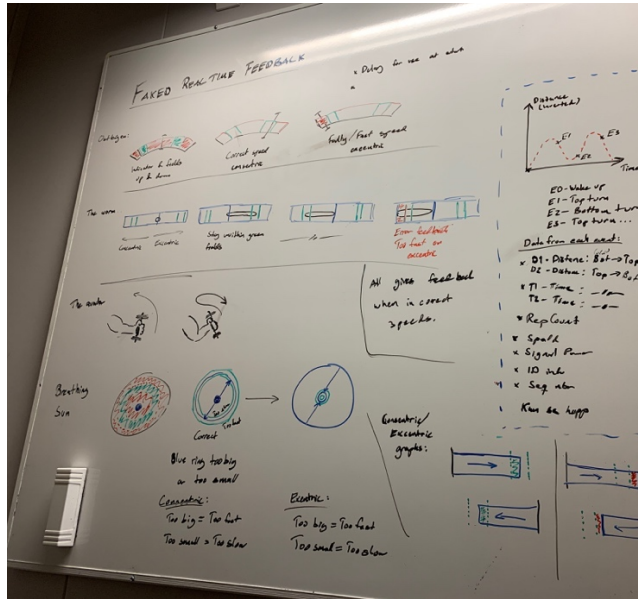 FAKED REALTIME FEEDBACK
x Delay for use at
x
Indicator & fields
up & down
Correct speed
concentric
Faulty/Fast speed
excentric
The worm
Concentric
Excentric
Stay within green
fields
Error feedback
Too fast on
excentric
All gives feedback
when in correct
speeds.
The
Breathing
Sun
Correct
Too fast
Blue ring too big
or too small
Concentric:
Too big = Too fast
Too small = Too slow
Excentric:
Too big = Too fast
Too small = Too slow
Concentric/
Excentric
graphs:
Distance
(inverted)
E1
E2
E3
Time
E0 - Wake up
E1 - Top turn
E2 - Bottom turn
E3 - Top turn ...
Data from each event:
x D1 - Distance: Bot → Top
D2 - Distance: Top → Bot
x T1 - Time :
T2 - Time :
x RepCount
x Speed
x Signal Power
x ID
x Seq